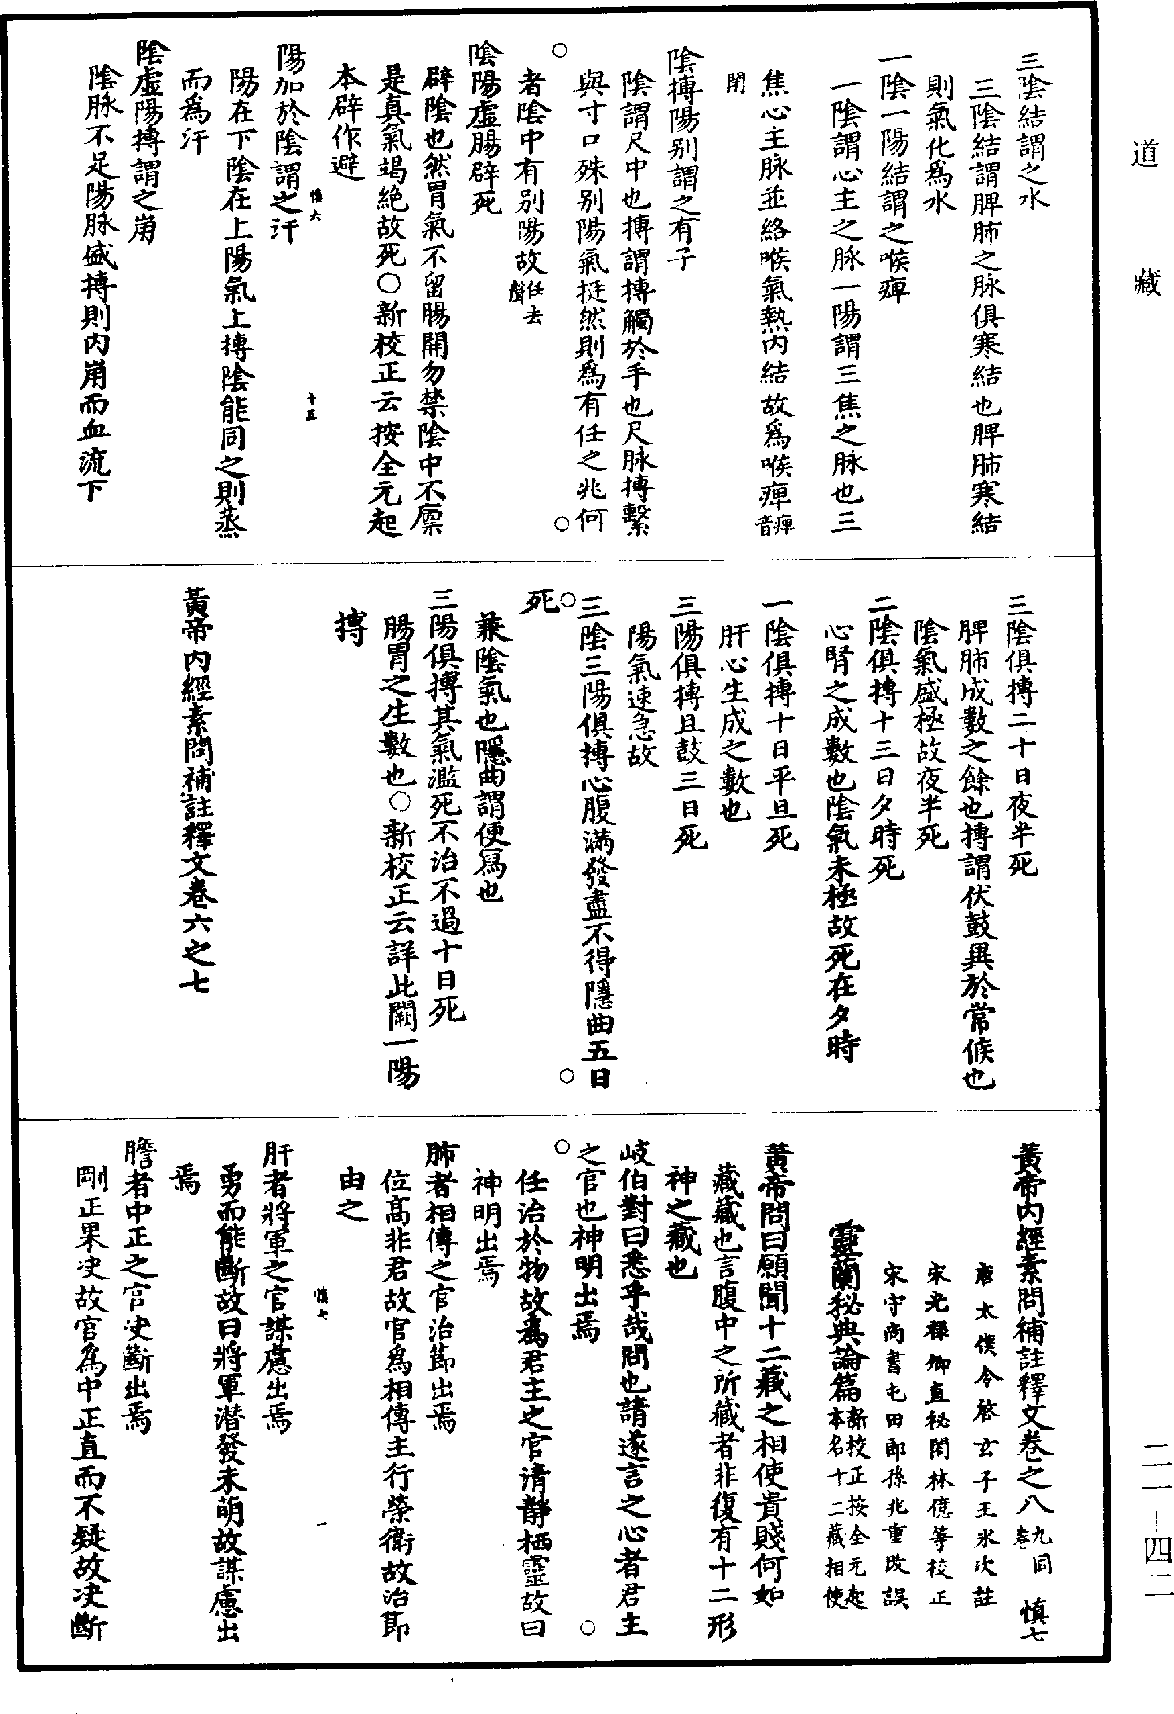 道藏
三陰結謂之水
三陰結謂脾肺之脉俱寒結也脾肺寒結
則氣化為水
一陰一陽結謂之喉痺
一陰謂心主之脉一陽謂三焦之脉也三
焦心主脉並絡喉氣熱内結故為喉痺痺音
閉
陰搏陽别謂之有子
陰謂尺中也搏謂搏觸於手也尺脉搏繫
與寸口殊别陽氣挺然則為有任之兆何
者陰中有别陽故任去聲
陰陽虚腸辟死
辟陰也然胃氣不留腸開勿禁陰中不廪
是真氣竭絶故死○新校正云按全元起
本辟作避
慎六
十五
陽加於陰謂之汗
陽在下陰在上陽氣上搏陰能同之則蒸
而為汗
陰虚陽搏謂之崩
陰脉不足陽脉盛搏則内崩而血流下
三陰俱搏二十日夜半死
脾肺成數之餘也搏謂伏鼓異於常候也
陰氣盛極故夜半死
二陰俱搏十三日夕時死
心腎之成數也陰氣未極故死在夕時
一陰俱搏十日平旦死
肝心生成之數也
三陽俱搏且鼓三日死
陽氣速急故
三陰三陽俱搏心腹滿發盡不得隱曲五日
死
兼陰氣也隱曲謂便寫也
三陽俱搏其氣濫死不治不過十日死
腸胃之生數也○新校正云詳此闕一陽
搏
黄帝内經素問補註釋文卷六之七
黄帝内經素問補註釋文卷之八九同卷 慎七
唐太僕令啓玄子王氷次註
宋光禄卿直秘閣林億等校正
宋守尚書屯田郎孫兆重改誤
靈蘭秘典論篇新校正按全元起本名十二藏相使
黄帝問曰願聞十二藏之相使貴賤何如
藏藏也言腹中之所藏者非復有十二形
神之藏也
岐伯對曰悉乎哉問也請遂言之心者君主
之官也神明出焉
任治於物故為君主之官清静栖靈故曰
神明出焉
肺者相傳之官治節出焉
位高非君故官為相傳主行榮衛故治節
由之
慎七
一
肝者將軍之官謀慮出焉
勇而能斷故曰將軍潜發未萌故謀慮出
焉
膽者中正之官决斷出焉
剛正果决故官為中正直而不疑故决斷
二一—四二